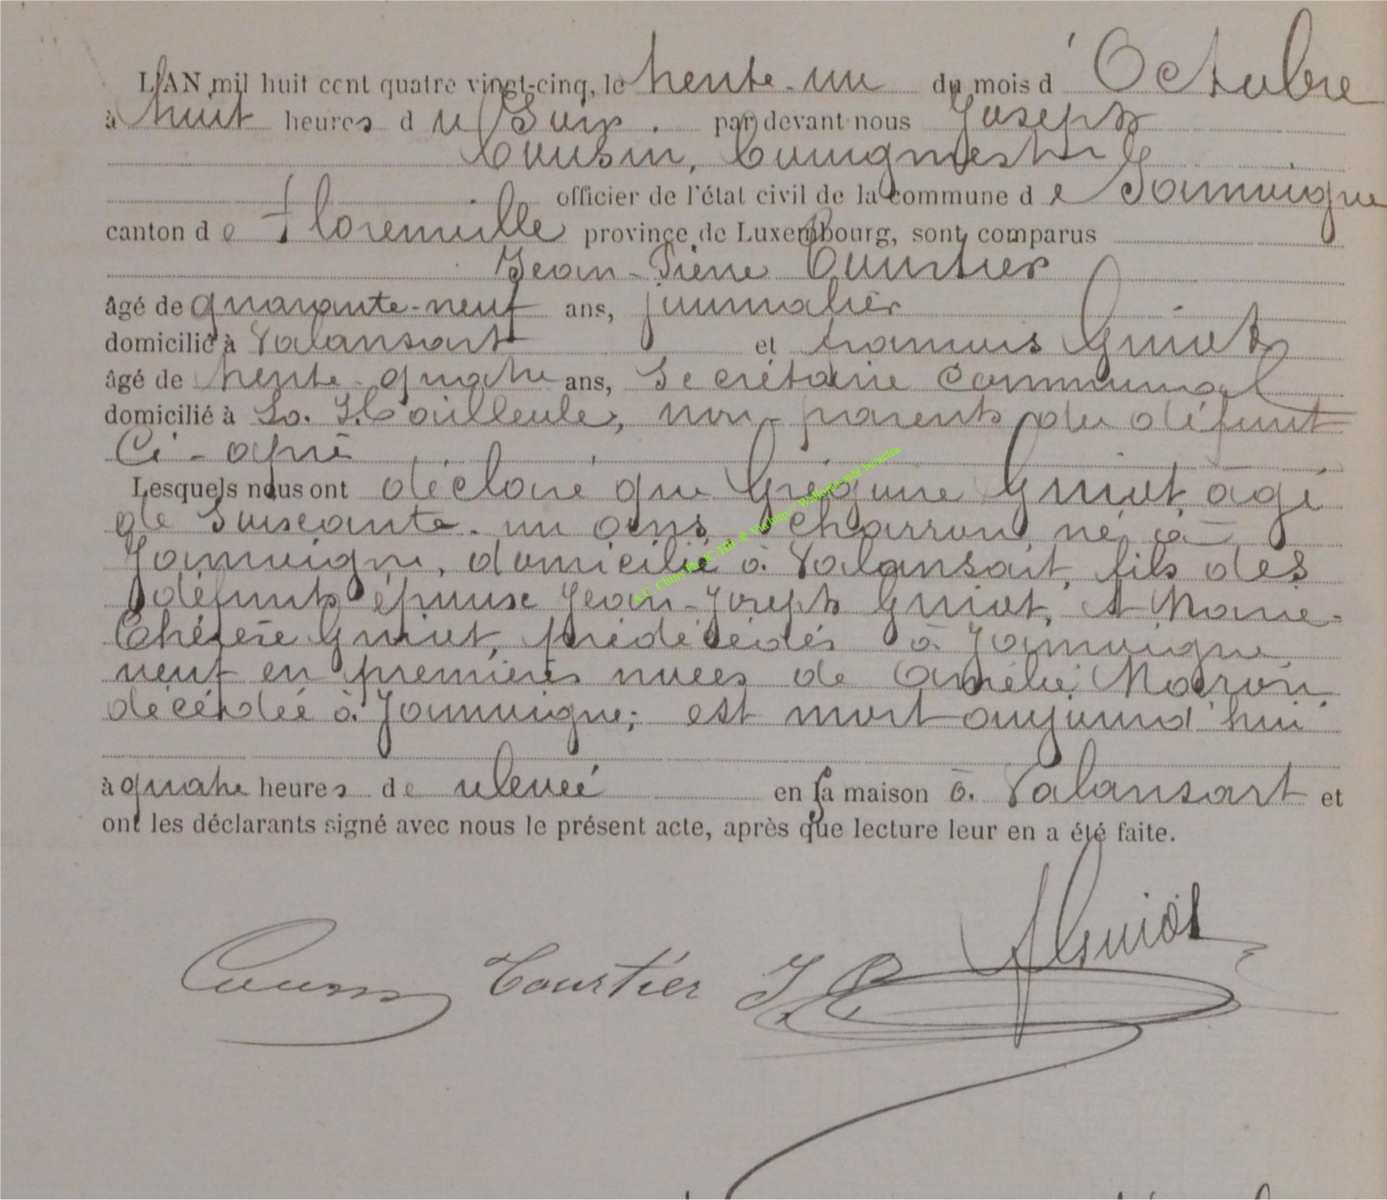 L'AN mil huit cent quatre vingt-cinq, le trente-un du mois d'Octobre
à huit heures d u Soir. par devant nous Joseph
Cousin, Bourgmestre
officier de l'état civil de la commune d e Jamoigne
canton d e Florenville province de Luxembourg, sont comparus
Jean-Pierre Courtier
âgé de quarante-neuf ans, journalier
domicilié à Valansart et François Guiot
âgé de trente-quatre ans, Secrétaire Communal
domicilié à La Hailleule, non-parents du défunt
Ci-après
Lesquels nous ont déclaré que Grégoire Guiot âgé
de Soixante-un ans, charron, né à
Jamoigne, domicilié à Valansart, fils des
défunts époux Jean-Joseph Guiot, et Marie-
Thérèse Guiot, prédécédés à Jamoigne
veuf en premières noces de Amélie
décédée à Jamoigne; est mort aujourd'hui
à quatre heures de relevée en sa maison à Valansart et
ont les déclarants signé avec nous le présent acte, après que lecture leur en a été faite.
Cousin Courtier J P Guiot